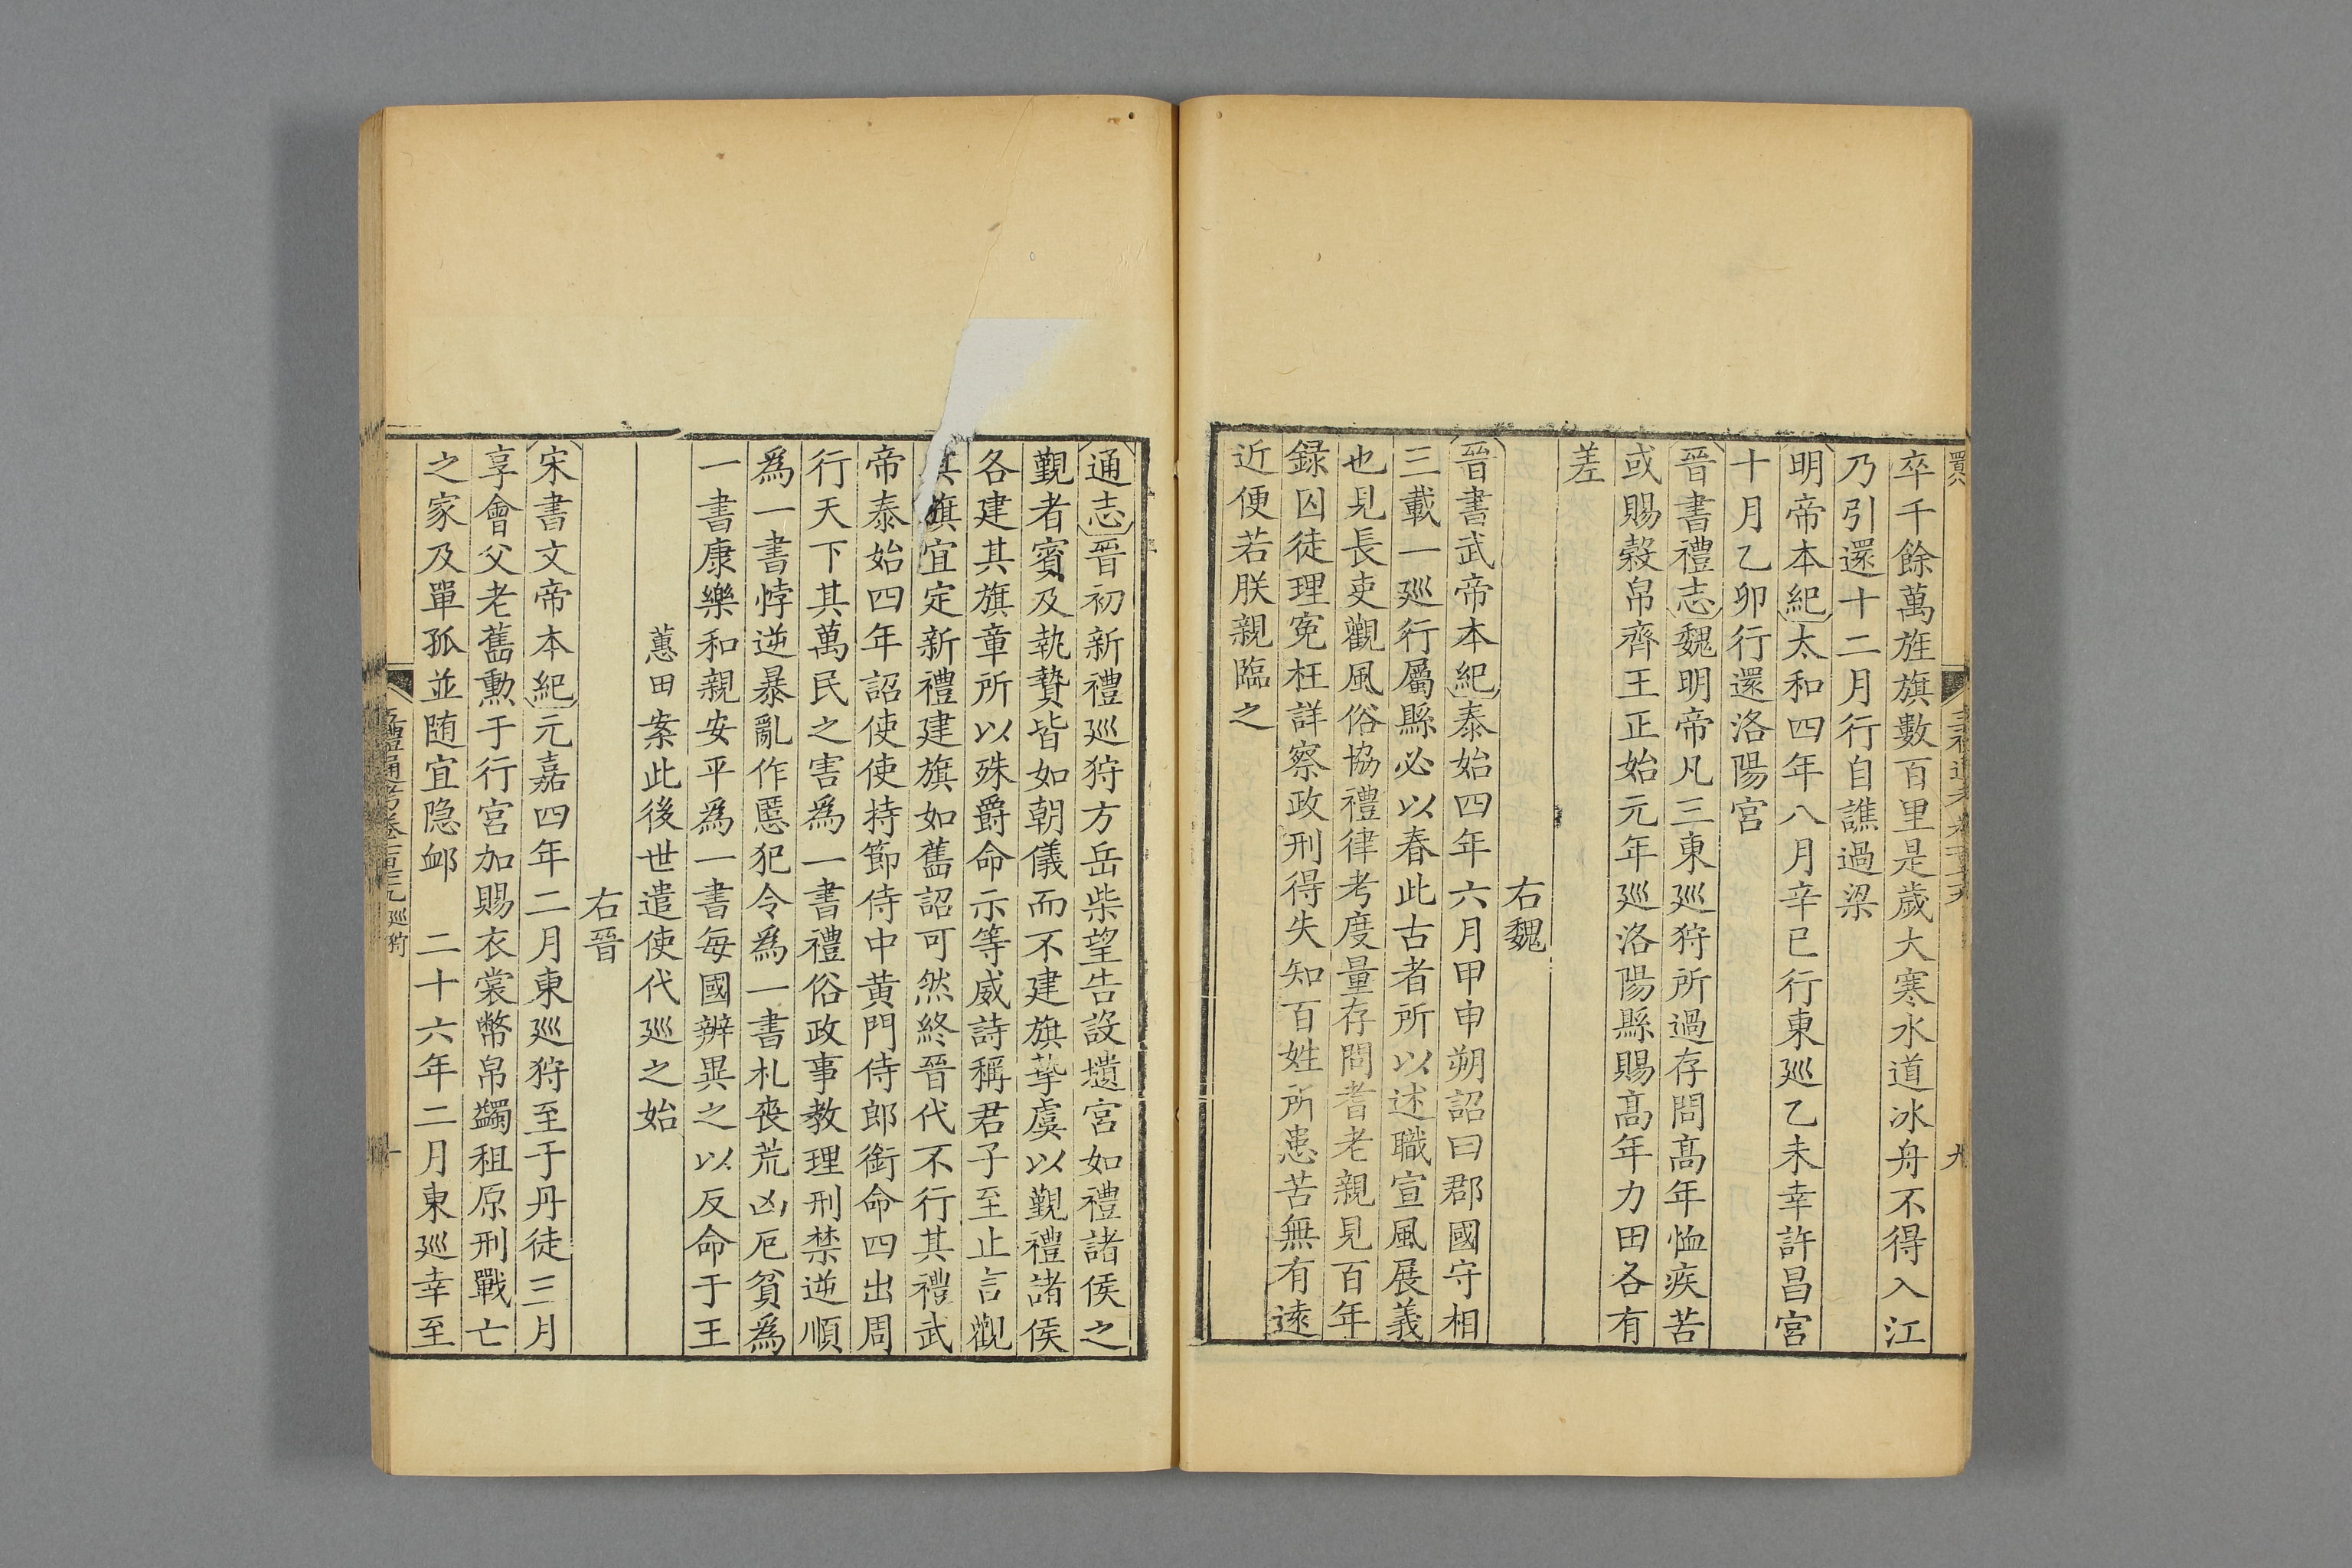 卒千餘萬旌旗數百里是歲大寒水道冰舟不得入江
乃引還十二月行自譙過梁
明帝本紀太和四年八月辛巳行東廵乙未幸許昌宮
十月乙卯行還洛陽宮
晉書禮志魏明帝凡三東廵狩所過存問髙年恤疾苦
或賜榖帛齊王正始元年廵洛陽縣賜髙年力田各有
差
右魏
晉書武帝本紀泰始四年六月甲申朔詔曰郡國守相
三載一廵行屬縣必以春此古者所以述職宣風展義
也見長吏觀風俗協禮律考度量存問耆老親見百年
録囚徒理寃枉詳察政刑得失知百姓所患苦無有逺
近便若朕親臨之
通志晉初新禮廵狩方岳柴望告設壝宮如禮諸侯之
覲者賓及執贄皆如朝儀而不建旗摯虞以覲禮諸侯
各建其旗章所以殊爵命示等威詩稱君子至止言觀
其旗宜定新禮建旗如舊詔可然終晉代不行其禮武
帝泰始四年詔使使持節侍中黄門侍郎銜命四出周
行天下其萬民之害為一書禮俗政事教理刑禁逆順
爲一書悖逆暴亂作慝犯令爲一書札喪荒凶厄貧爲
一書康樂和親安平爲一書每國辨異之以反命于王
蕙田案此後世遣使代廵之始
右晉
宋書文帝本紀元嘉四年二月東廵狩至于丹徒三月
享會父老舊勲于行宮加賜衣裳幣帛蠲租原刑戰亡
之家及單孤並随宜隐卹　二十六年二月東廵幸至
五禮通考卷一百七十九 廵狩
十
九